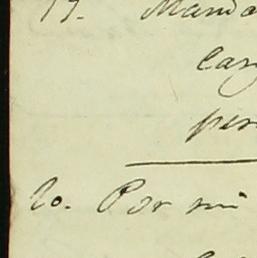 17. Manda
car
per
20. Por mi